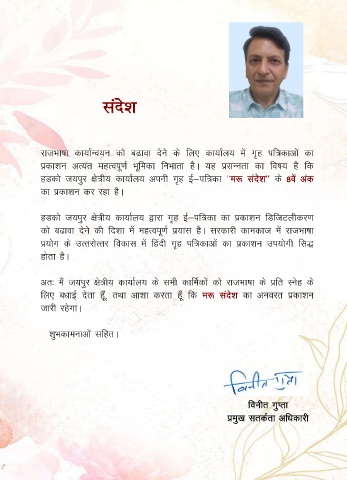 संदेश
राजभाषा कार्यान्वयन को बढावा देने के लिए कार्यालय में गृह पत्रिकाओं का
प्रकाशन अत्यंत महत्वपूर्ण भूमिका निभाता है। यह प्रसन्नता का विषय है कि
हडको जयपुर क्षेत्रीय कार्यालय अपनी गृह ई–पत्रिका "मरू संदेश" के 8वें अंक
का प्रकाशन कर रहा है।
हडको जयपुर क्षेत्रीय कार्यालय द्वारा गृह ई–पत्रिका का प्रकाशन डिजिटलीकरण
को बढावा देने की दिशा में महत्वपूर्ण प्रयास है। सरकारी कामकाज में राजभाषा
प्रयोग के उत्तरोत्तर विकास में हिंदी गृह पत्रिकाओं का प्रकाशन उपयोगी सिद्ध
होता है।
अतः मैं जयपुर क्षेत्रीय कार्यालय के सभी कार्मिकों को राजभाषा के प्रति स्नेह के
लिए बधाई देता हूँ, तथा आशा करता हूँ कि मरू संदेश का अनवरत प्रकाशन
जारी रहेगा।
शुभकामनाओं सहित।
विनीत गुप्ता
विनीत गुप्ता
प्रमुख सतर्कता अधिकारी